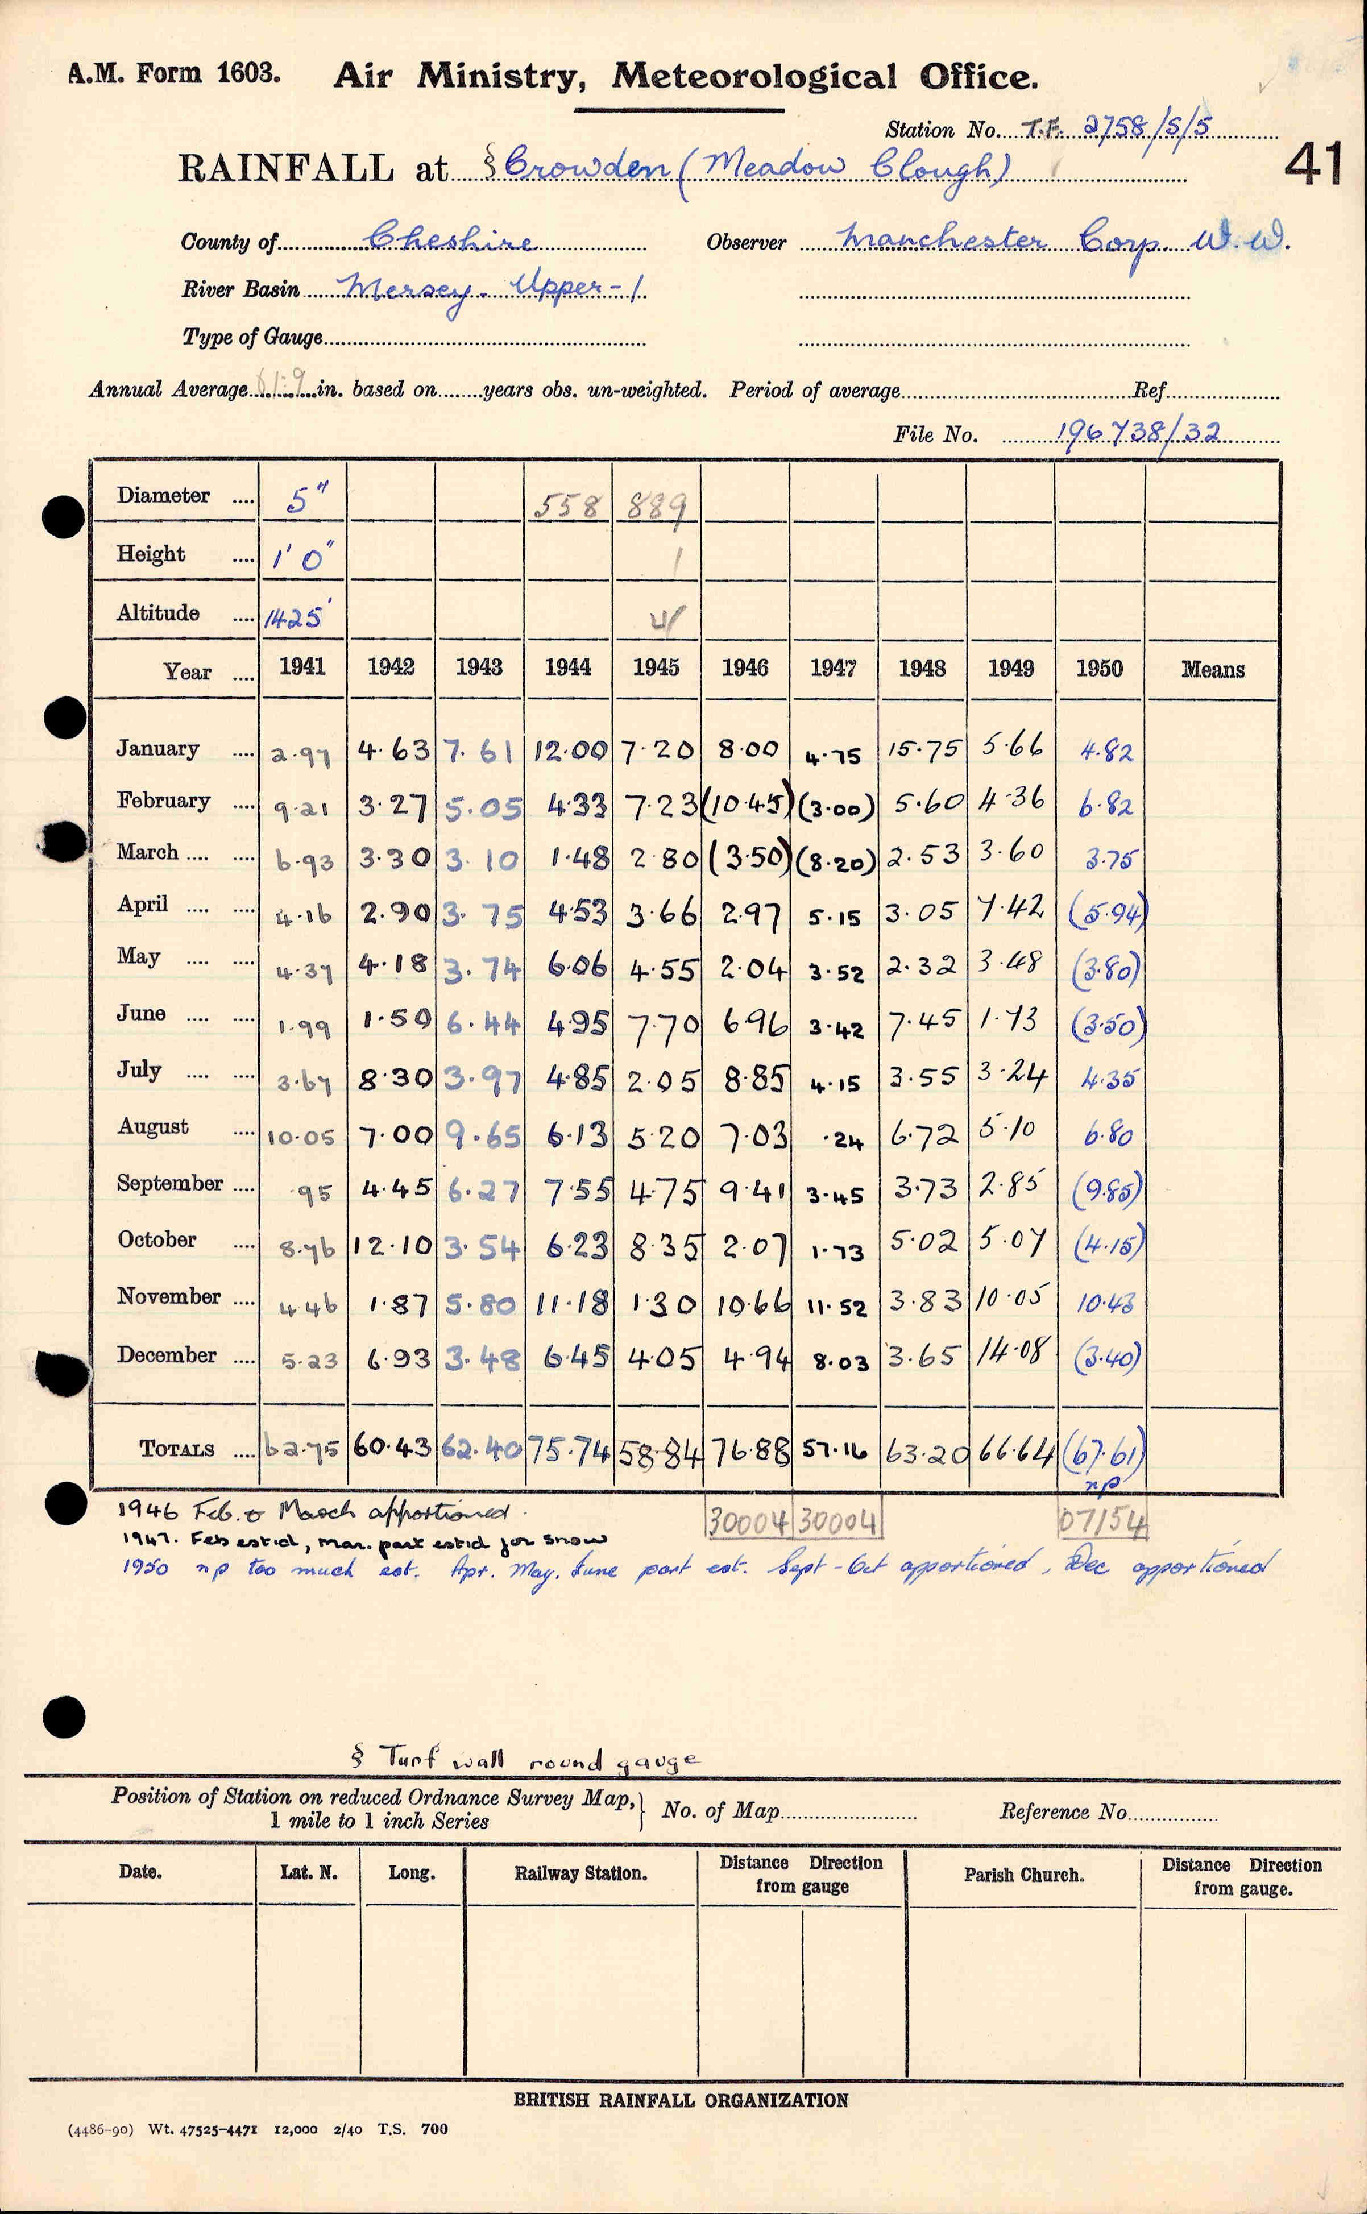 A.M. Form 1603. Air Ministry, Meteorological Office.
Station No. T.F. 2758/5/5
RAINFALL at § Crowden (Meadow Clough)
41
County of Cheshire Observer Manchester Corp. W.W.
River Basin Mersey - Upper - 1
Type of Gauge
Annual Average 61.9 in. based on years obs. un-weighted. Period of average Ref.
File No. 196738/32
Diameter .... 5" 558 889
Height .... 1' 0" 1
Altitude .... 1425'
Year .... 1941 1942 1943 1944 1945 1946 1947 1948 1949 1950 Means
January .... 2.97 4.63 7.61 12.00 7.20 8.00 4.75 15.75 5.66 4.82
February .... 9.21 3.27 5.05 4.33 7.23 (10.45) (3.00) 5.60 4.36 6.82
March .... .... 6.93 3.30 3.10 1.48 2.80 (3.50) (8.20) 2.53 3.60 3.75
April .... .... 4.16 2.90 3.75 4.53 3.66 2.97 5.15 3.05 7.42 (5.94)
May .... .... 4.37 4.18 3.74 6.06 4.55 2.04 3.52 2.32 3.48 (3.80)
June .... .... 1.99 1.50 6.44 4.95 7.70 6.96 3.42 7.45 1.73 (3.50)
July .... .... 3.67 8.30 3.97 4.85 2.05 8.85 4.15 3.55 3.24 4.35
August .... 10.05 7.00 9.65 6.13 5.20 7.03 .24 6.72 5.10 6.80
September .... .95 4.45 6.27 7.55 4.75 9.41 3.45 3.73 2.85 (9.85)
October .... 8.76 12.10 3.54 6.23 8.35 2.07 1.73 5.02 5.07 (4.15)
November .... 4.46 1.87 5.80 11.18 1.30 10.66 11.52 3.83 10.05 10.43
December .... 5.23 6.93 3.48 6.45 4.05 4.94 8.03 3.65 14.08 (3.40)
TOTALS .... 62.75 60.43 62.40 75.74 58.84 76.88 57.16 63.20 66.64 (67.61)
np
1946 Feb. & March apportioned. 30004 30004 07/54
1947. Feb estd, Mar. part estd for snow
1950 np too much est. Apr. May, June part est. Sept - Oct apportioned, Dec apportioned
§ Turf wall round gauge
Position of Station on reduced Ordnance Survey Map, 1 mile to 1 inch Series } No. of Map Reference No.
Date. Lat. N. Long. Railway Station. Distance Direction from gauge Parish Church. Distance Direction from gauge.
BRITISH RAINFALL ORGANIZATION
(4486-90) Wt. 47525-4471 12,000 2/40 T.S. 700